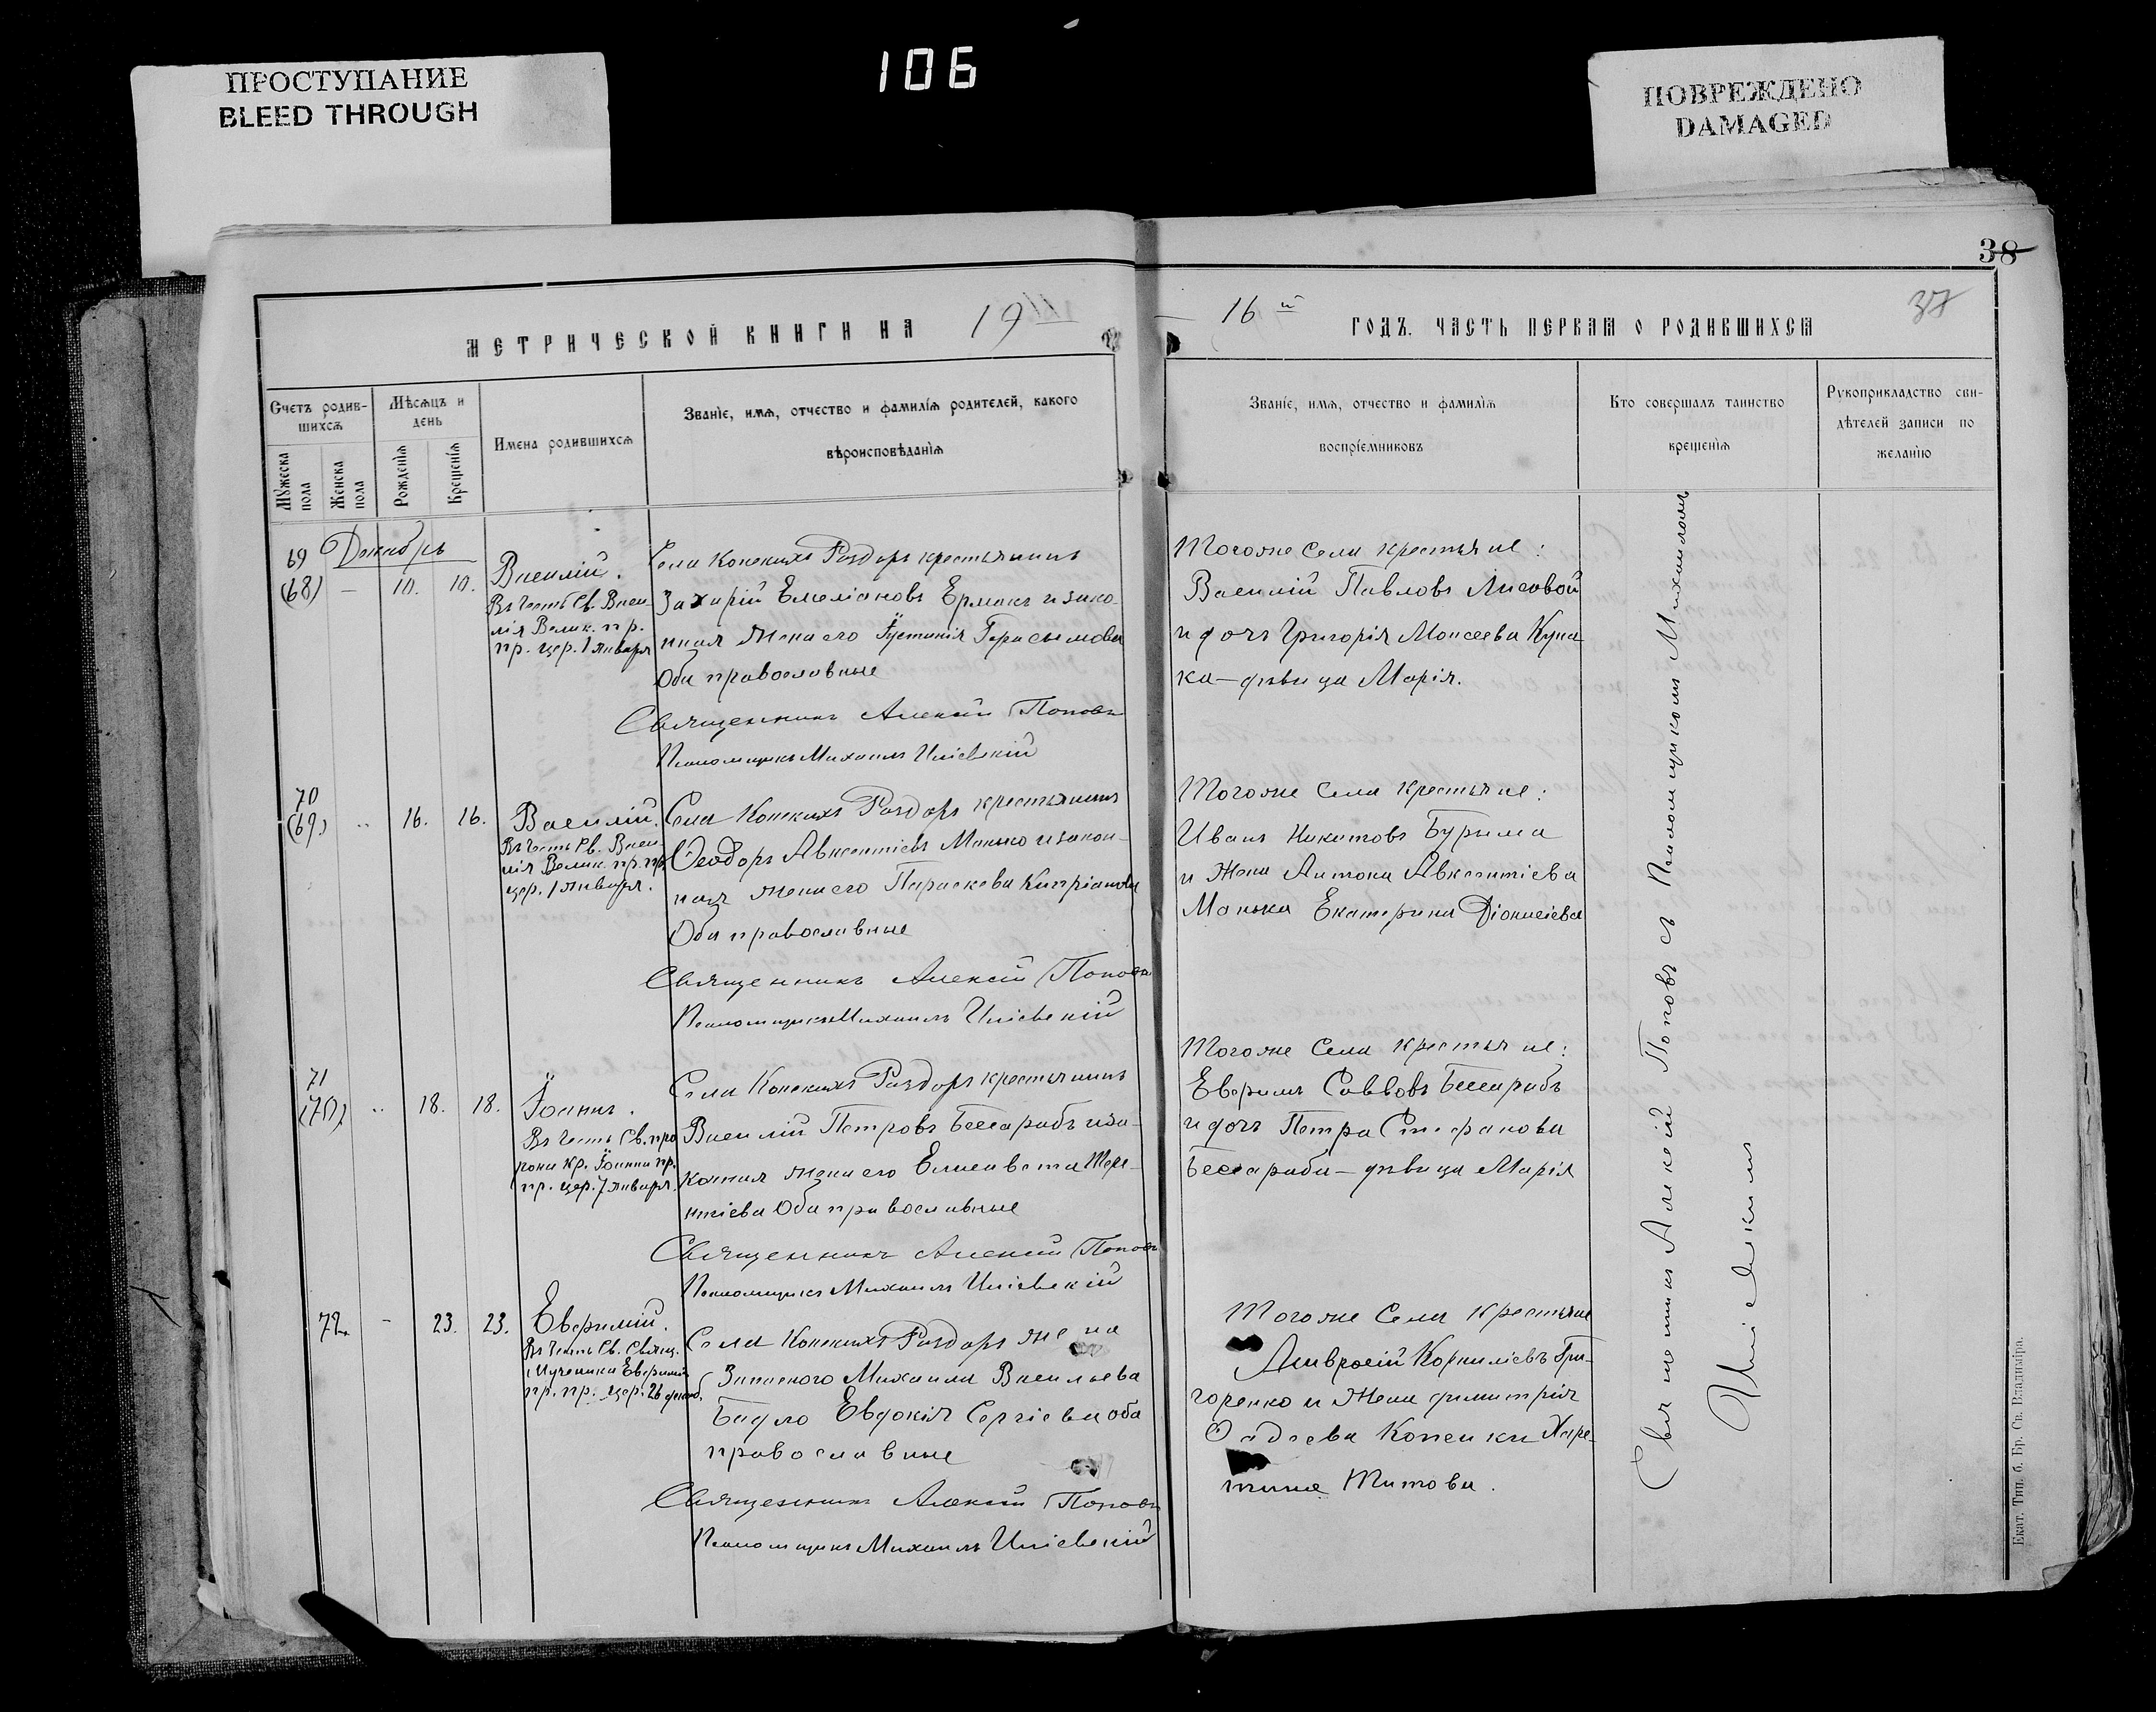 ПРОСТУПАНИЕ
BLEED THROUGH
106
ПОВРЕЖДЕНО
DAMAGED
38
37
МЕТРИЧЕСКОЙ КНИГИ НА 19
16й ГОДЪ. ЧАСТЬ ПЕРВАЯ О РОДИВШИХСЯ
Счетъ родив-
шихся
Мужеска
пола
Женска
пола
Мѣсяцъ и
день
Рожденія
Крещенія
Имена родившихся
Званіе, имя, отчество и фамилія родителей, какого
вѣроисповѣданія
Званіе, имя, отчество и фамилія
воспріемниковъ
Кто совершалъ таинство
крещенія
Рукоприкладство сви-
дѣтелей записи по
желанію
Декабрь
69
(68) — 10. 10.
Василій.
Въ честь Св. Васи-
лія Велик. пр.
пр. цер. 1 января
Села Конскихъ Раздоръ крестьянинъ
Захарій Емеліановъ Ермакъ и зако-
нная жена его Іустинія Герасимова
Оба православные
Священникъ Алексій Поповъ
Псаломщикъ Михаилъ Иліевскій
Тогоже Села крестьяне:
Василій Павловъ Лисовой
и дочь Григорія Моисеева Куца-
ка — дѣвица Марія.
70
(69) „ 16. 16.
Василій.
Въ честь Св. Васи-
лія Велик. пр. пр.
цер. 1 января.
Села Конскихъ Раздоръ крестьянинъ
Ѳеодоръ Авксентіевъ Манько и закон-
ная жена его Параскева Кипріанова
Оба православные
Священникъ Алексій Поповъ
Псаломщикъ Михаилъ Иліевскій
Тогоже Села крестьяне:
Иванъ Никитовъ Бурыма
и жена Антона Авксентіева
Манька Екатерина Діонисіева
71
(70) „ 18. 18.
Іоаннъ.
Въ честь Св. про
рока Кр. Іоанна пр.
пр. цер. 7 января.
Села Конскихъ Раздоръ крестьянинъ
Василій Петровъ Бессарабъ и за-
конная жена его Елисавета Тере-
нтіева Оба православные
Священникъ Алексій Поповъ
Псаломщикъ Михаилъ Иліевскій
Тогоже Села крестьяне:
Ефримъ Савовъ Бессарабъ
и дочь Петра Стефанова
Бессараба — дѣвица Марія
72. - 23. 23.
Евфимій.
Въ честь Св. Свящ.
Мученика Евфимія
пр. пр. цер. 26 декаб.
Села Конскихъ Раздоръ жена
Запасного Михаила Васильева
Бадло Евдокія Сергіева оба
православные
Священникъ Алексій Поповъ
Псаломщикъ Михаилъ Иліевскій
Тогоже Села крестьяне
Амвросій Корниліевъ Гри-
горенко и жена Димитрія
Ѳадеева Копейки Хари-
тина Титова.
Священникъ Алексій Поповъ съ Псаломщикомъ Михаиломъ
Иліевскимъ
Екат. Тип. б. Бр. Св. Владиміра.